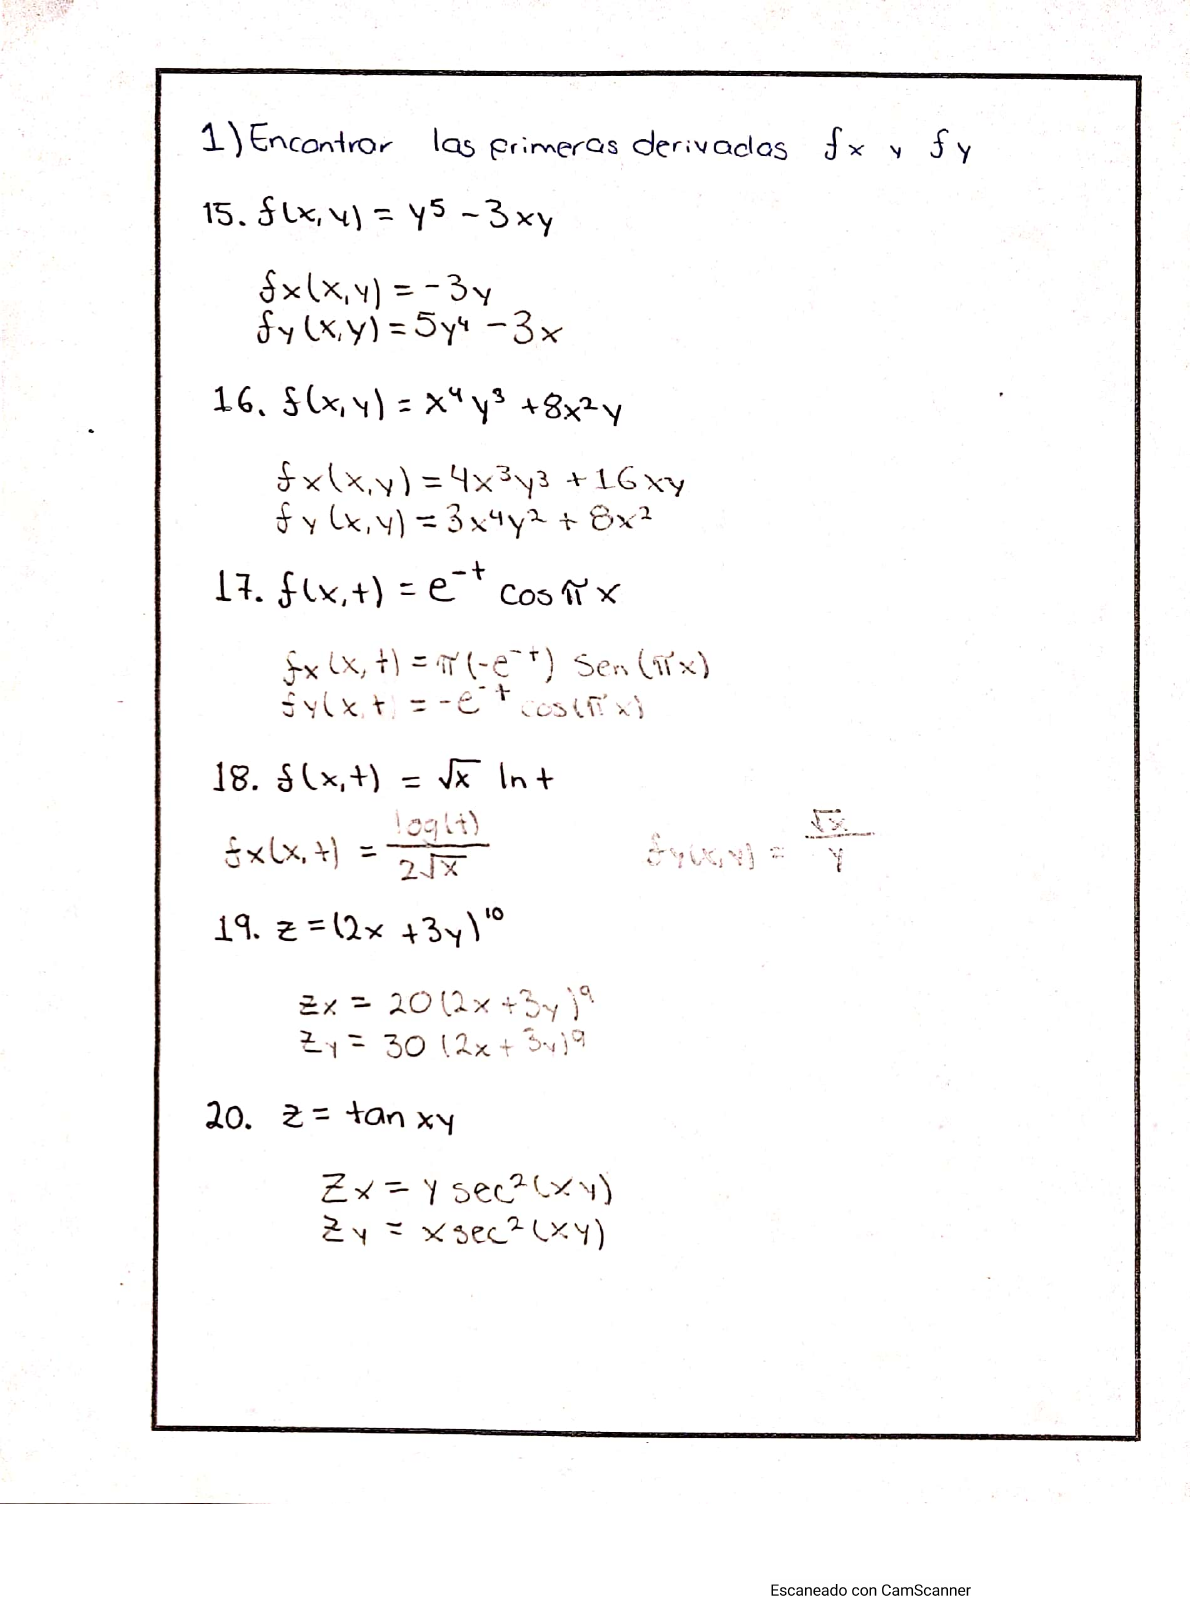 1) Encontrar las primeras derivadas fx y fy
15. f(x,y) = y⁵ - 3xy
fx(x,y) = -3y
fy(x,y) = 5y⁴ - 3x
16. f(x,y) = x⁴y³ + 8x²y
fx(x,y) = 4x³y³ + 16xy
fy(x,y) = 3x⁴y² + 8x²
17. f(x,t) = e⁻ᵗ cos πx
fx(x,t) = π(-e⁻ᵗ) Sen(πx)
fy(x,t) = -e⁻ᵗ cos(πx)
18. f(x,t) = √x ln t
fx(x,t) = log(t) / 2√x    fy(x,y) = √x / y
19. z = (2x + 3y)¹⁰
zx = 20(2x + 3y)⁹
zy = 30(2x + 3y)⁹
20. z = tan xy
zx = y sec²(xy)
zy = x sec²(xy)
Escaneado con CamScanner